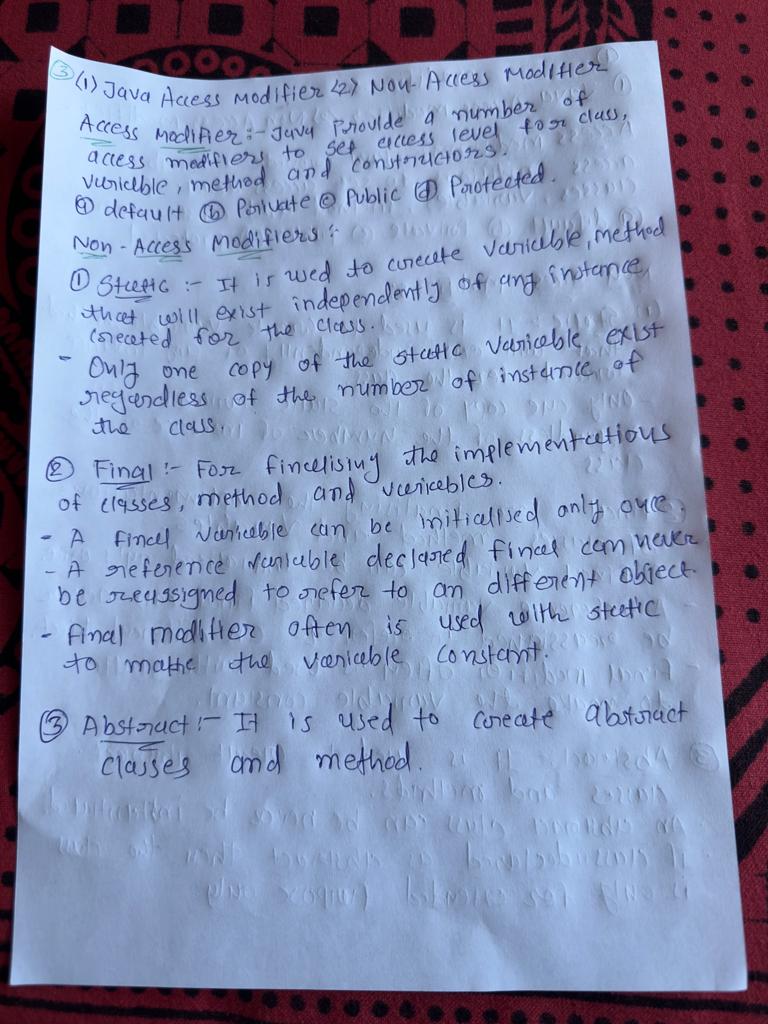 ③ (1) Java Access Modifier (2) Non-Access Modifier
Access Modifier :- Java Provide a number of
access modifiers to set access level for class,
variable, method and constructors.
ⓐ default ⓑ Private ⓒ Public ⓓ Protected.
Non-Access Modifiers :-
① Static :- It is used to create variable, method
that will exist independently of any instance
created for the class.
- Only one copy of the static variable exist
regardless of the number of instance of
the class.
② Final :- For finalising the implementations
of classes, method and variables.
- A final variable can be initialised only once.
- A reference variable declared final can never
be reassigned to refer to an different object.
- final modifier often is used with static
to make the variable constant.
③ Abstract :- It is used to create abstract
classes and method.